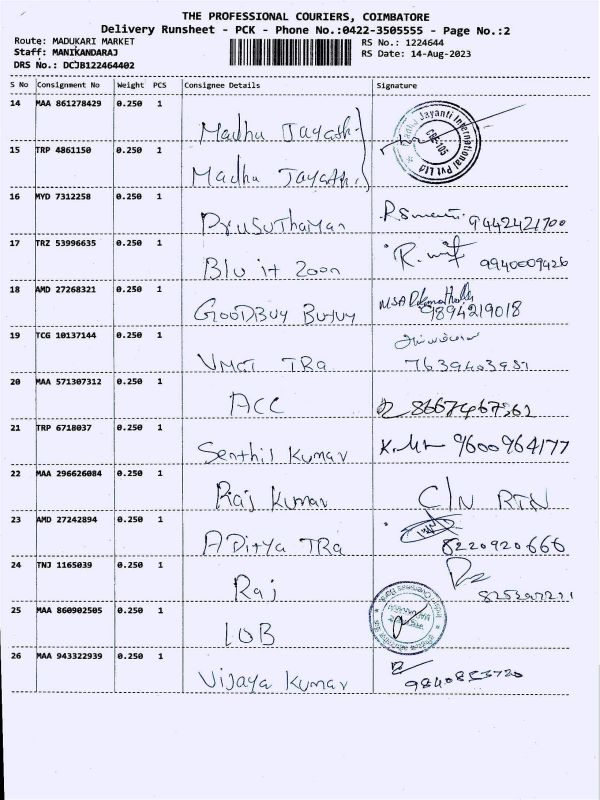 THE PROFESSIONAL COURIERS, COIMBATORE
Delivery Runsheet - PCK - Phone No.:0422-3505555 - Page No.:2
Route: MADUKARI MARKET RS No.: 1224644
Staff: MANIKANDARAJ RS Date: 14-Aug-2023
DRS No.: DCJB122464402
S No Consignment No Weight PCS Consignee Details Signature
14 MAA 861278429 0.250 1 Madhu Jayath Jayanti International Pvt Ltd CBE-105
15 TRP 4861150 0.250 1 Madhu Jayath
16 MYD 7312258 0.250 1 PruSuThaman 9442421700
17 TRZ 53996635 0.250 1 Blu it Zoon 9940009426
18 AMD 27268321 0.250 1 GOODBUY 9894219018
19 TCG 10137144 0.250 1 TRa 7639403951
20 MAA 571307312 0.250 1 ACC
21 TRP 6718037 0.250 1 Senthil Kumar 9600964177
22 MAA 296626084 0.250 1 Raj Kumar C/N RTN
23 AMD 27242894 0.250 1 ADitya TRa 8220920666
24 TNJ 1165039 0.250 1 Raj
25 MAA 860902505 0.250 1 IOB
26 MAA 943322939 0.250 1 Vijaya Kumar